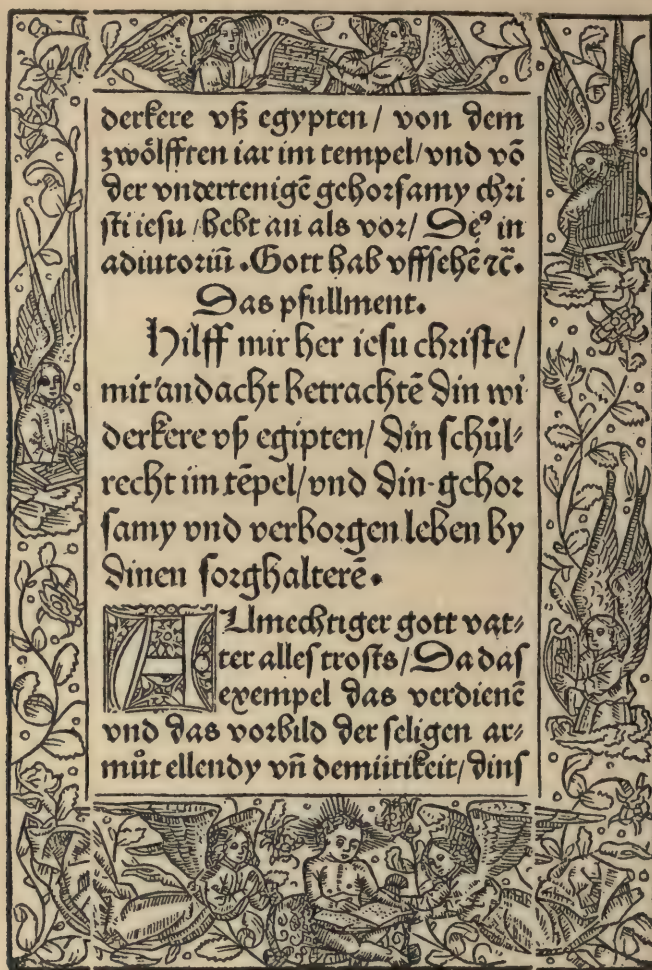 derkere vß egypten/ von dem
zwölfften iar im tempel/vnd vō
der vndertenigē gehorsamy chri
sti iesu /hebt an als vor/ Deꝰ in
adiutoriū .Gott hab vffsehē ⁊c̄.
Das pfullment.
Hilff mir her iesu christe/
mit andacht betrachtē din wi
derkere vß egipten/ din schůl⸗
recht im tēpel/vnd din gehor
samy vnd verborgen leben by
dinen sorghalterē.
ALlmechtiger gott vat⸗
ter alles trosts/Da das
exempel das verdienē
vnd das vorbild der seligen ar⸗
můt ellendy vn̄ demütikeit/ dins